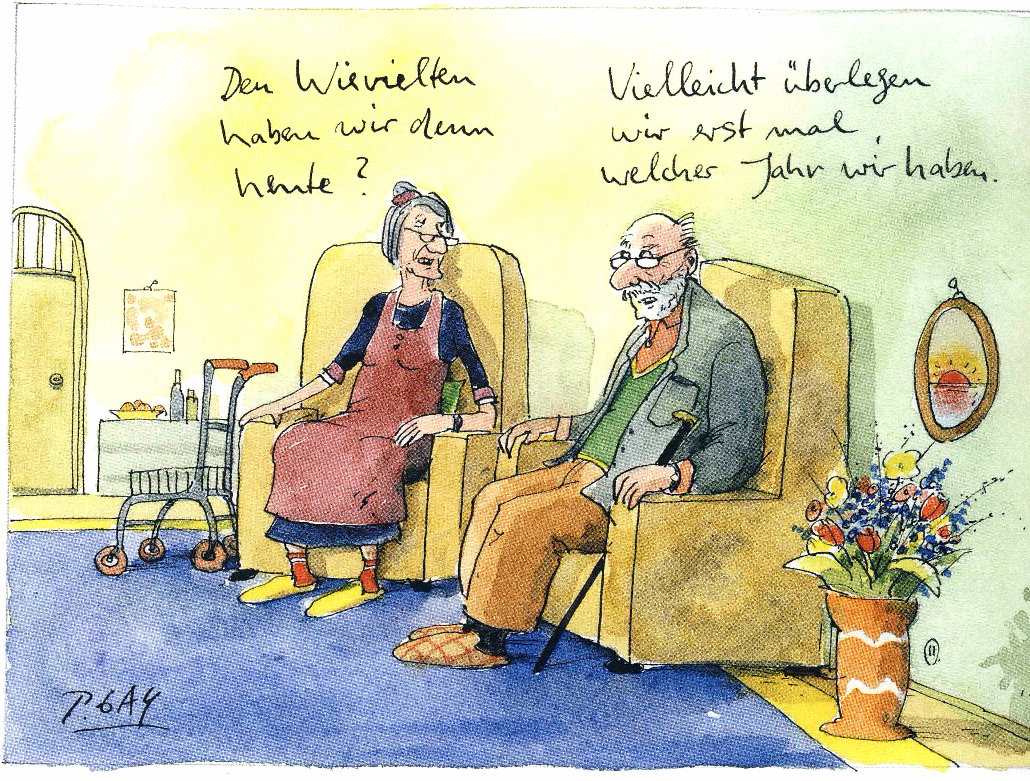 Den Wievielten
haben wir denn
heute?
Vielleicht überlegen
wir erst mal,
welcher Jahr wir haben.
P. GAY